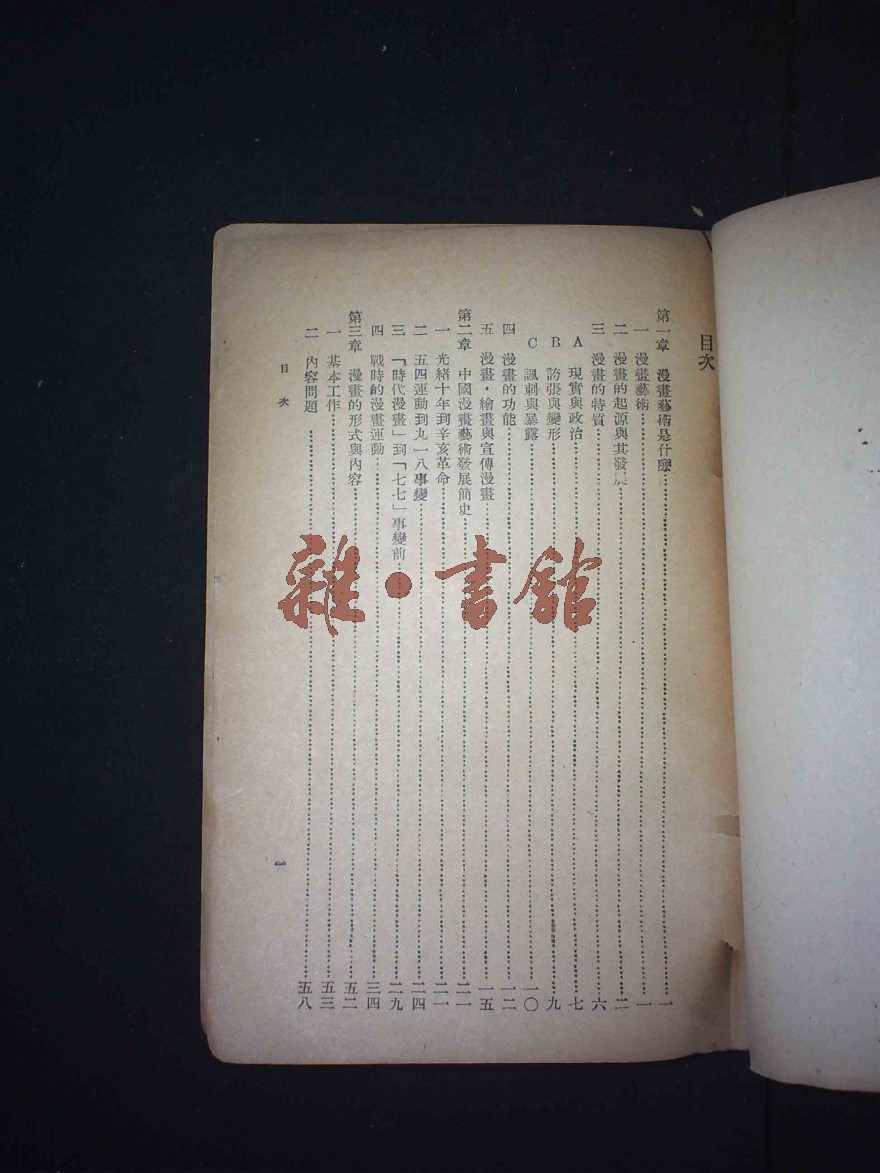 目次
第一章 漫畫藝術是什麼……一
一 漫畫藝術……一
二 漫畫的起源與其發展……二
三 漫畫的特質……六
A 現實與政治……七
B 誇張與變形……九
C 諷刺與暴露……一〇
四 漫畫的功能……一二
五 漫畫·繪畫與宣傳漫畫……一五
第二章 中國漫畫藝術發展簡史……二一
一 光緒十年到辛亥革命……二一
二 五四運動到九一八事變……二四
三 「時代漫畫」到「七七」事變前……二九
四 戰時的漫畫運動……三四
第三章 漫畫的形式與內容……五二
一 基本工作……五三
二 內容問題……五八
目次
一
雜·書館